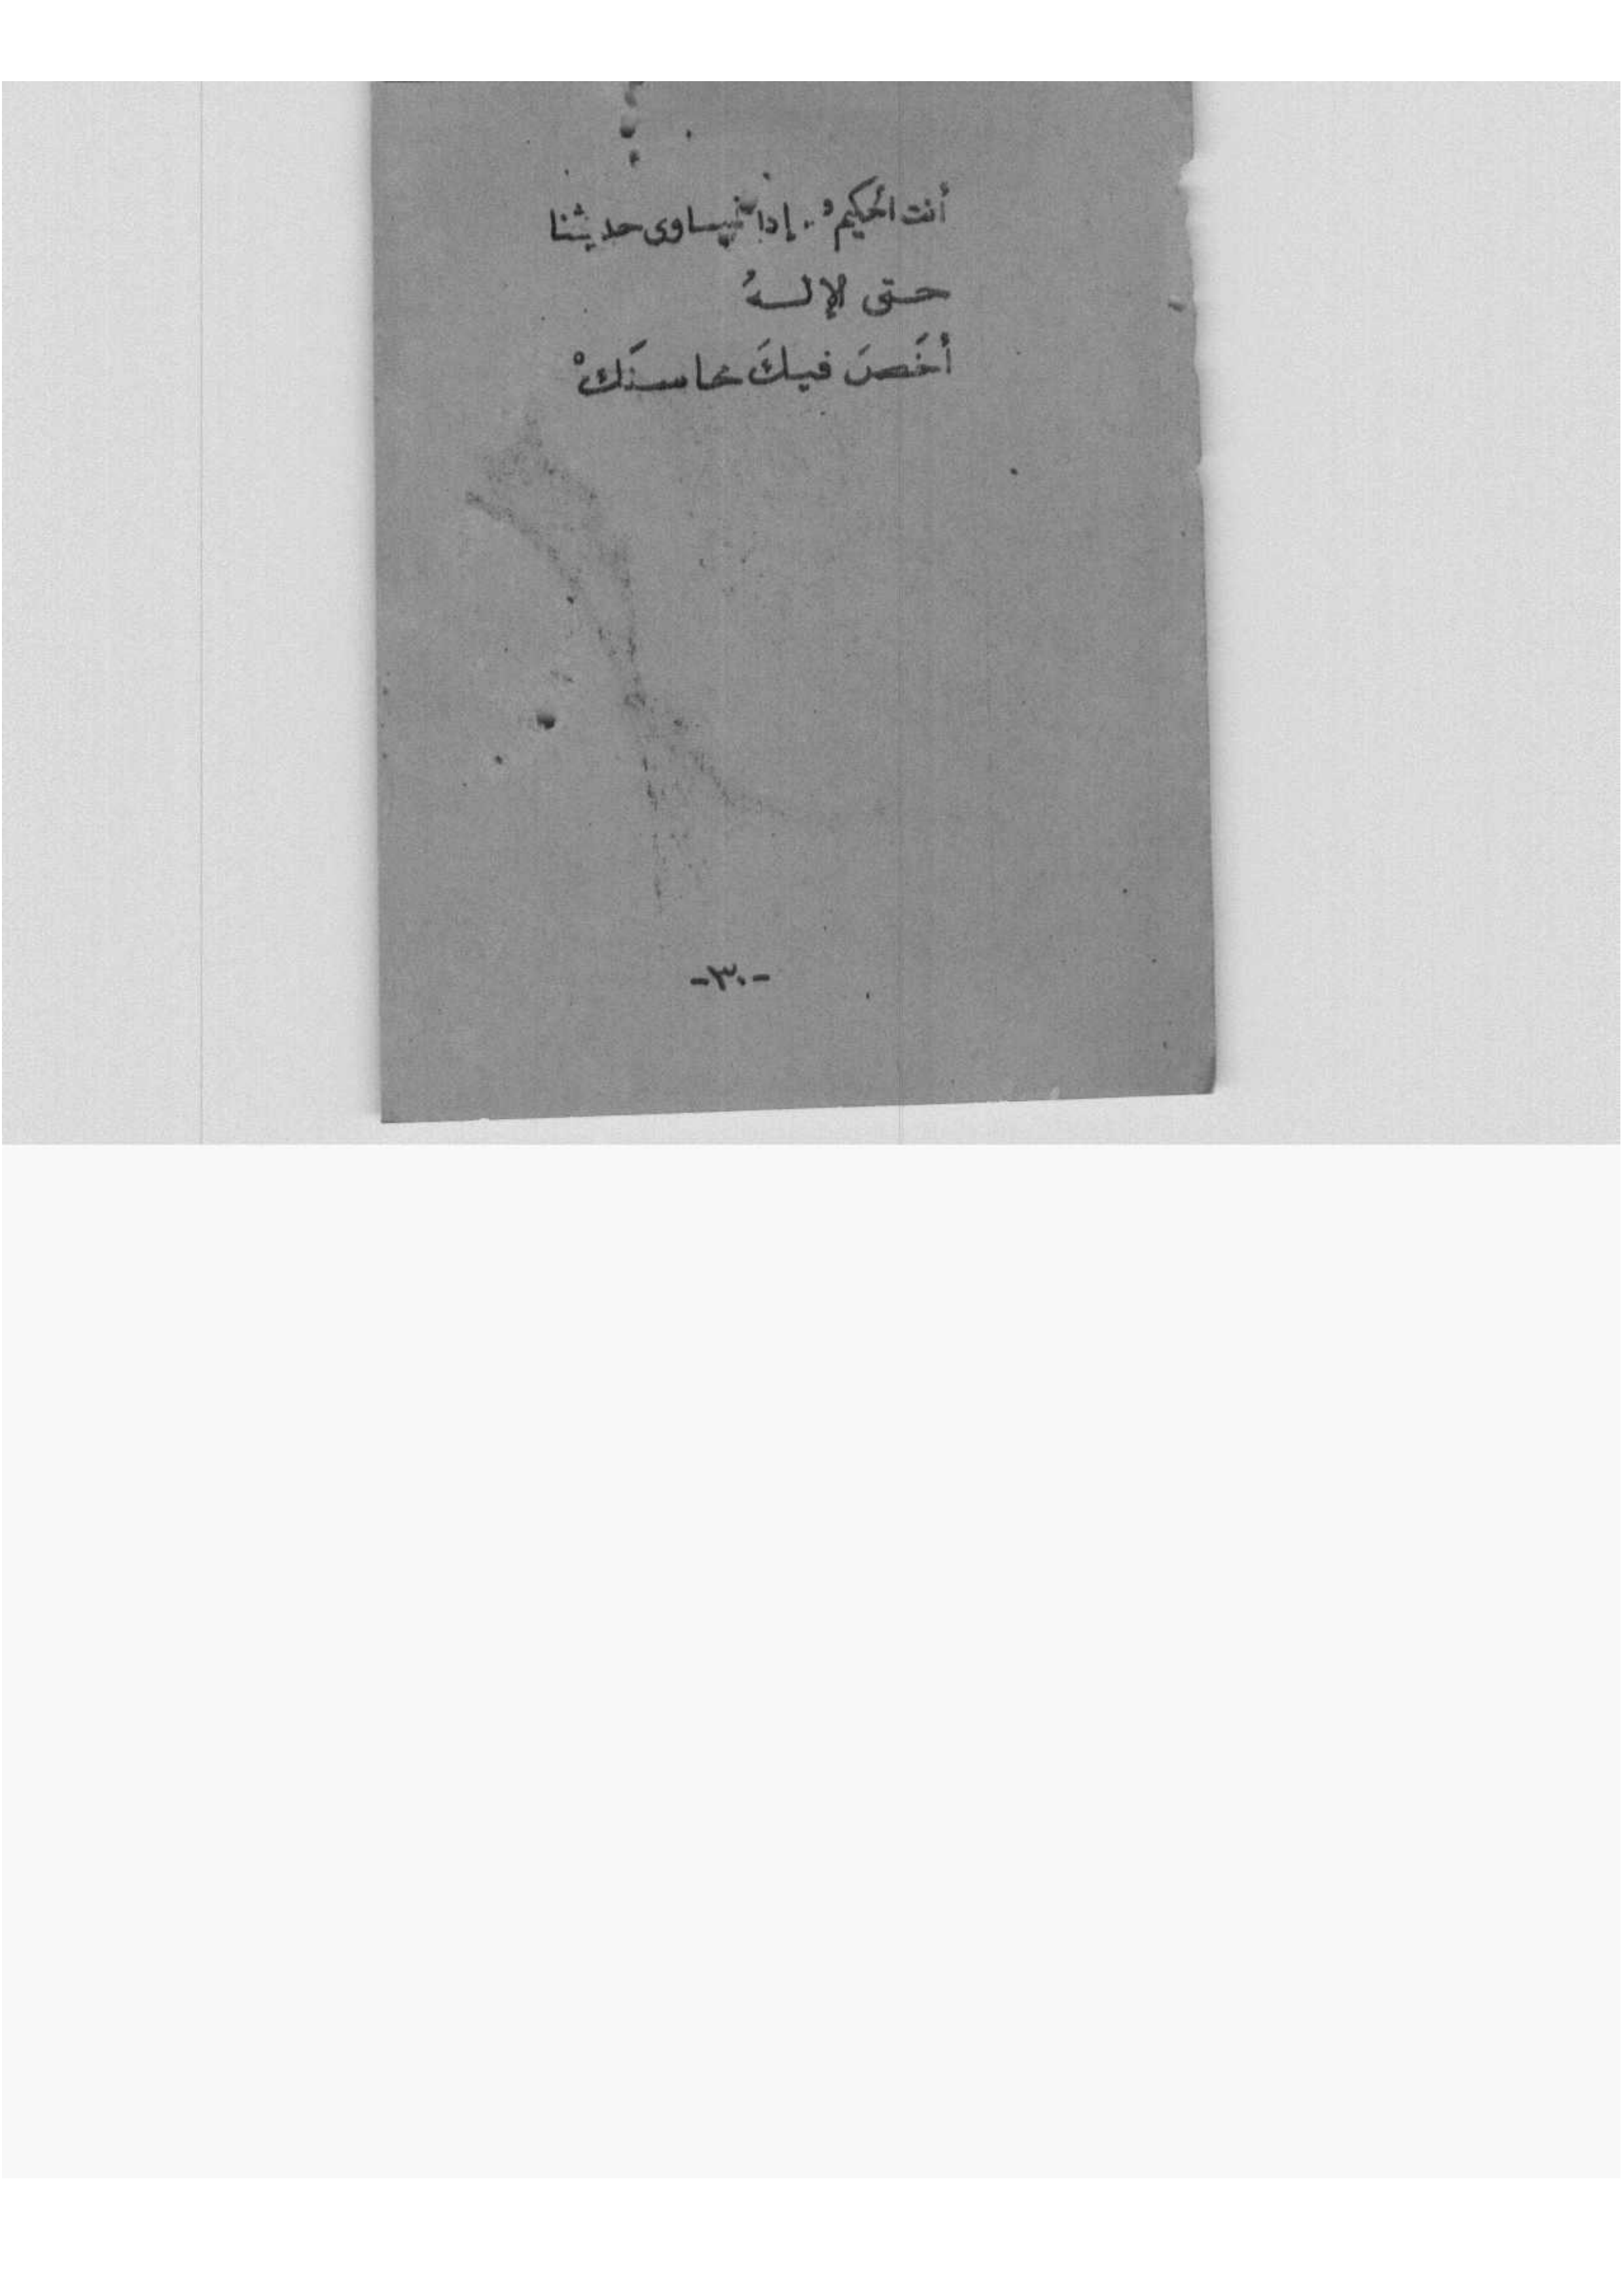 أنت الحكيمُ .. إذا يساوى حديثنا
حتى الإلـهُ
أخَصَ فيكَ محاسنَكْ
-٣٠-